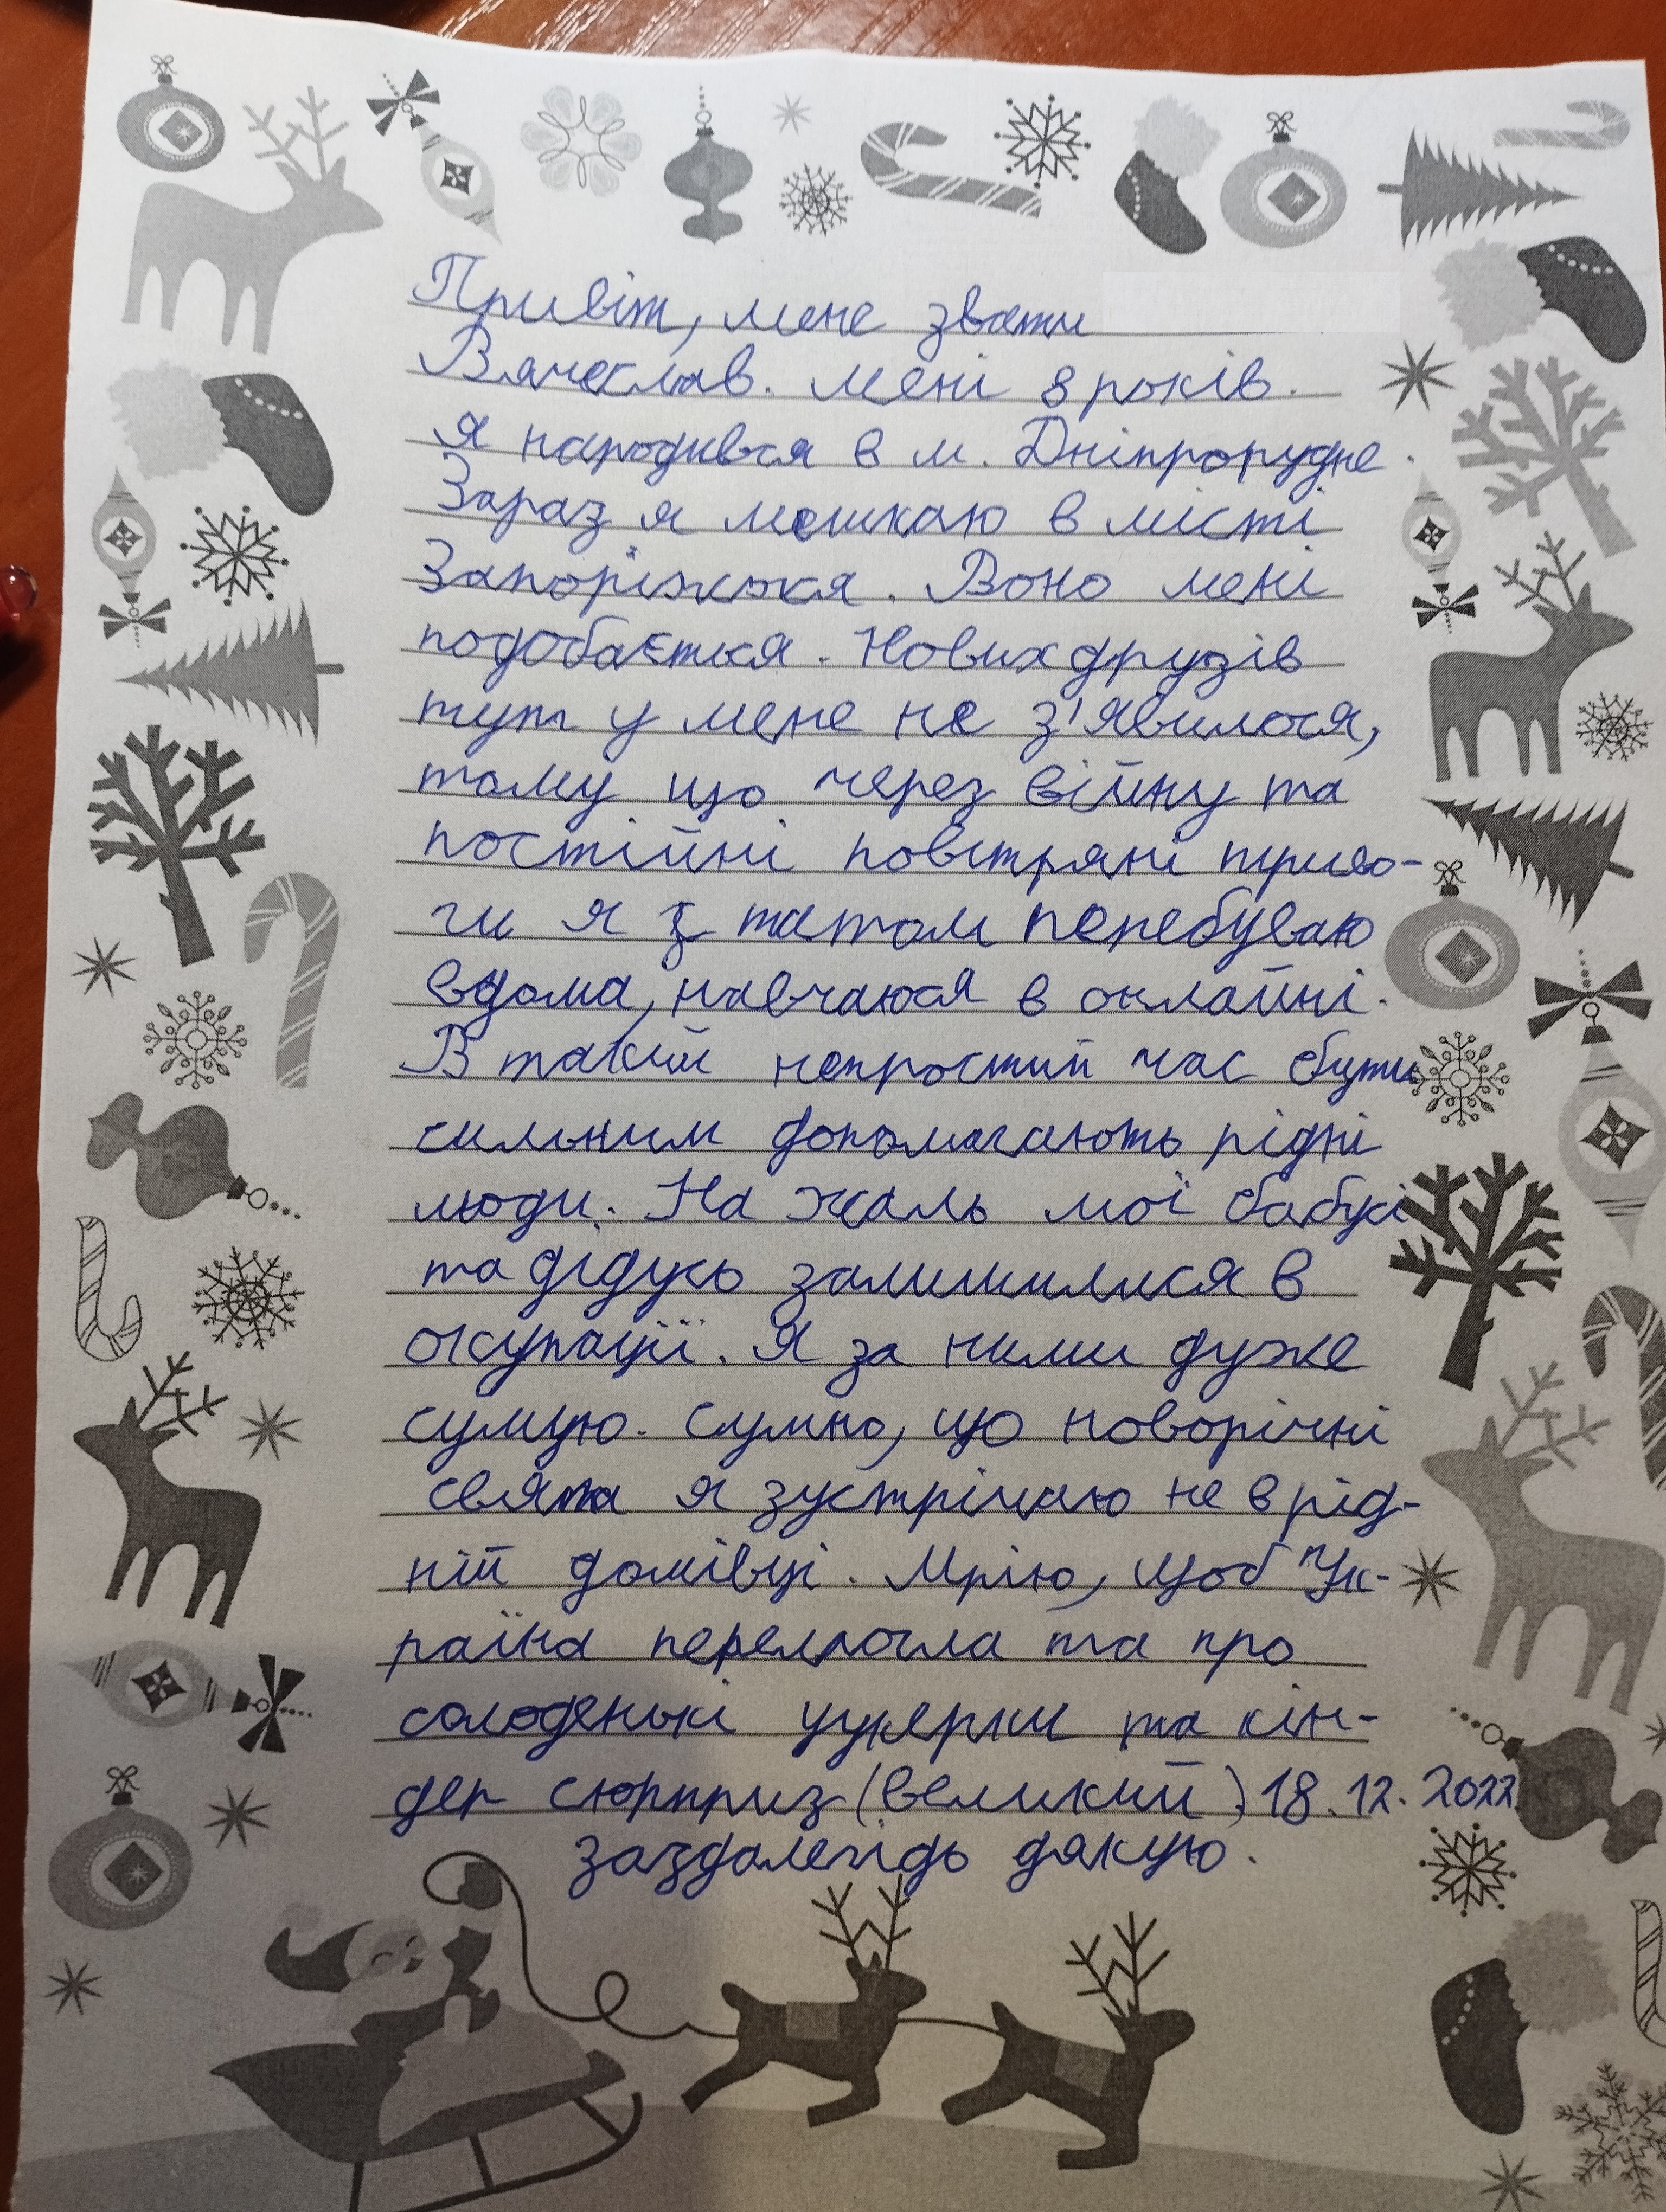 Привіт, мене звати
Вячеслав. Мені 8 років.
Я народився в м. Дніпрорудне.
Зараз я мешкаю в місті
Запоріжжя. Воно мені
подобається. Нових друзів
тут у мене не з'явилося,
тому що через війну та
постійні повітряні триво-
ги я з татом перебуваю
вдома, навчаюся в онлайні.
В такий непростий час бути
сильним допомагають рідні
люди. На жаль мої бабусі
та дідусь залишилися в
окупації. Я за ними дуже
сумую. Сумно, що новорічні
свята я зустрічаю не в рід-
ній домівці. Мрію, щоб Ук-
раїна перемогла та про
солоденькі цукерки та кін-
дер сюрприз (великий). 18.12.2022
заздалегідь дякую.